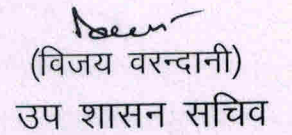 (विजय वरन्दानी)
उप शासन सचिव